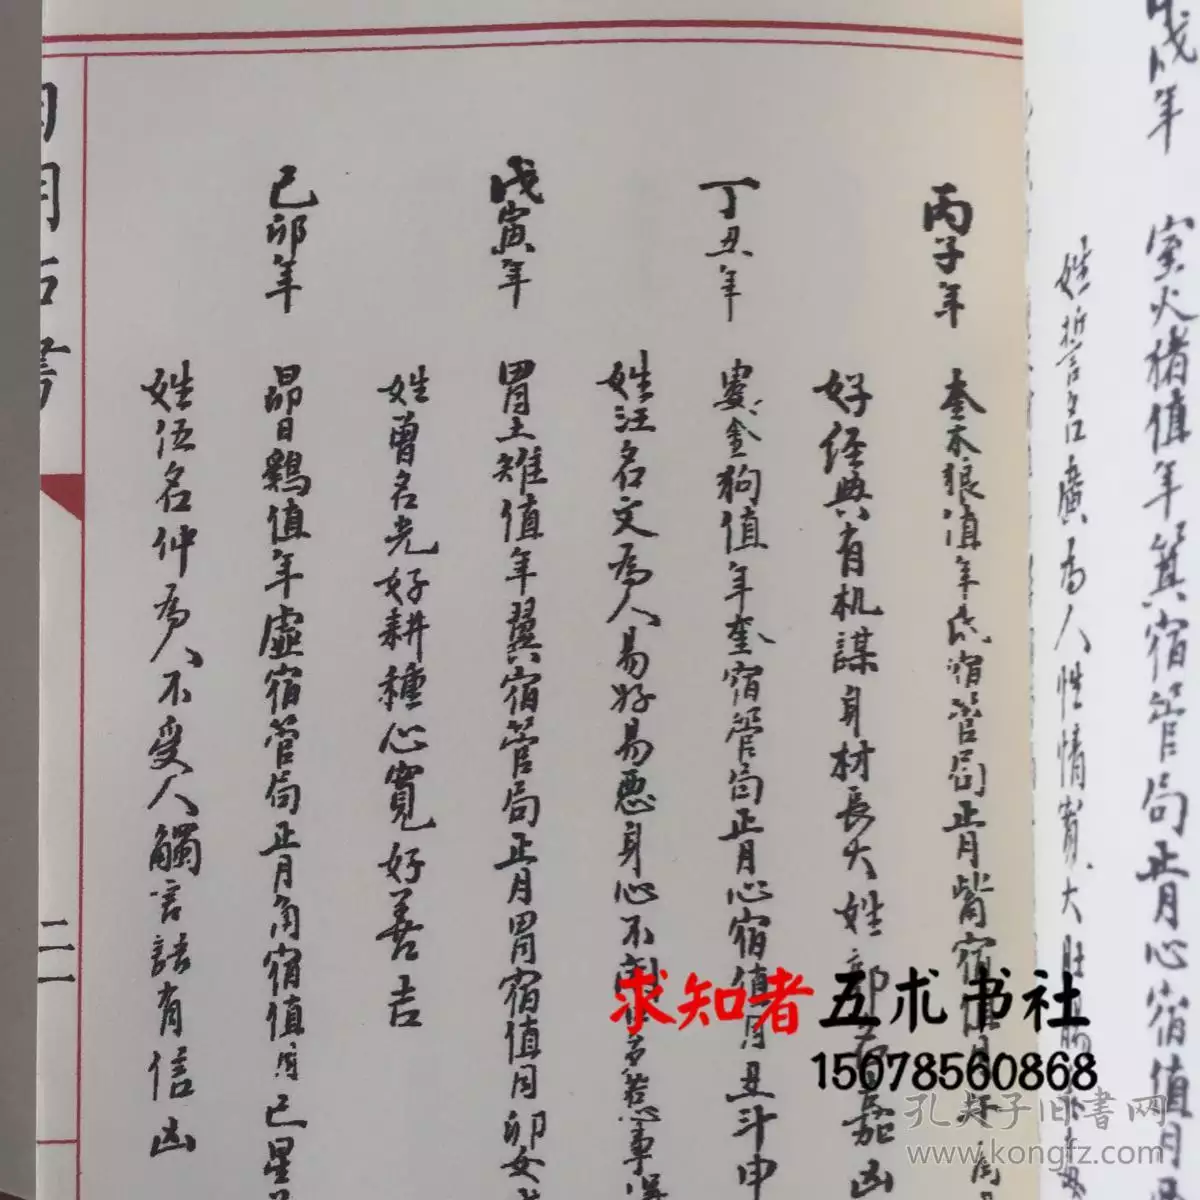 戊年 室火猪值年箕宿管局正月心宿值月
姓哲名廣為人性情寬大
丙子年 奎木狼值年氐宿管局正月觜宿值月
好经典有机謀身材長大姓郭名嘉凶
丁丑年 婁金狗值年奎宿管局正月心宿值月丑斗申
姓汪名文為人易好易悪身心不閑 多惹事
戊寅年 胃土雉值年翼宿管局正月胃宿值月卯女
姓曾名光好耕種心寬好善吉
己卯年 昴日鷄值年虛宿管局正月角宿值月巳星
姓伍名仲為人不受人觸言語有信凶
二一
求知者 五术书社
15678560868
孔夫子旧书网
www.kongfz.com